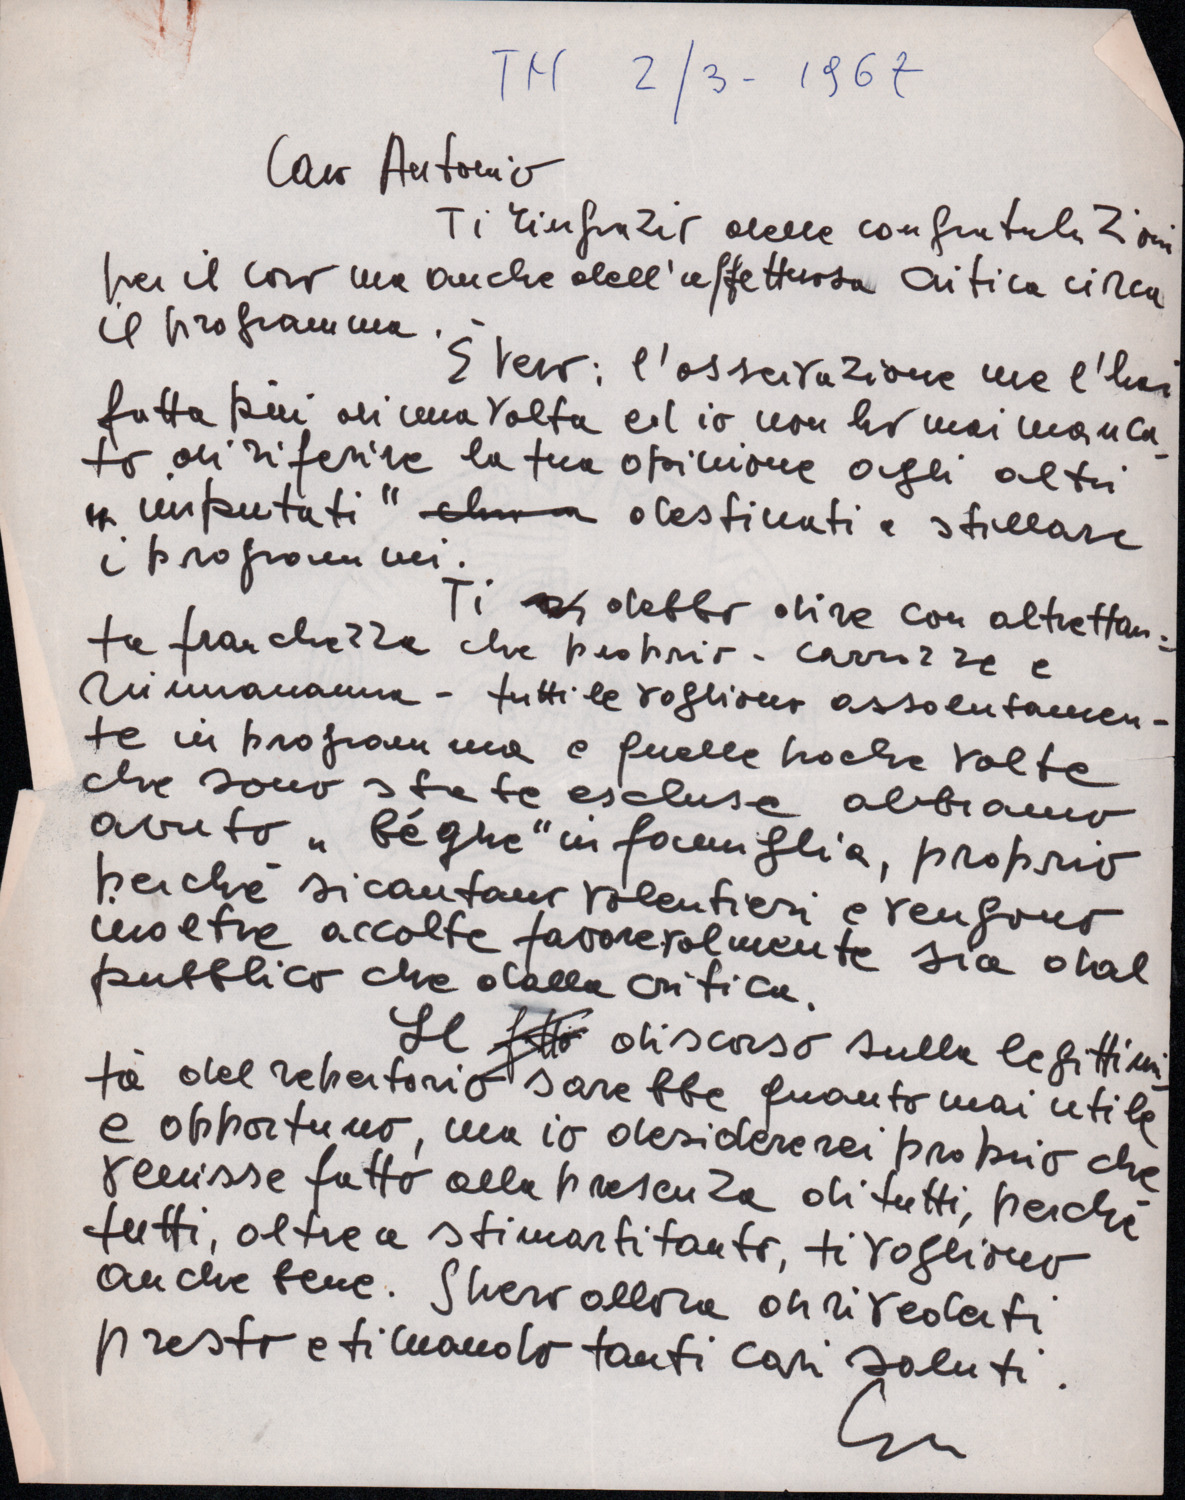 TM 2/3 - 1967
Caro Antonio
Ti ringrazio delle congratulazioni
per il coro ma anche dell'affettuosa critica circa
il programma.
È vero; l'osservazione me l'hai
fatta più di una volta ed io non ho mai manca-
to di riferire la tua opinione agli altri
"imputati" destinati a stillare
i programmi.
Ti debbo dire con altrettan-
ta franchezza che proprio - carrozze e
- tutti le vogliono assolutamen-
te in programma e quelle poche volte
che sono state escluse abbiamo
avuto "béghe" in famiglia, proprio
perché si cantano volentieri e vengono
inoltre accolte favorevolmente sia dal
pubblico che dalla critica.
Il discorso sulla legittimi-
tà del repertorio sarebbe quanto mai utile
e opportuno, ma io desidererei proprio che
venisse fatto alla presenza di tutti, perché
tutti, oltre a stimarti tanto, ti vogliono
anche bene. Spero allora di rivederti
presto e ti mando tanti cari saluti.